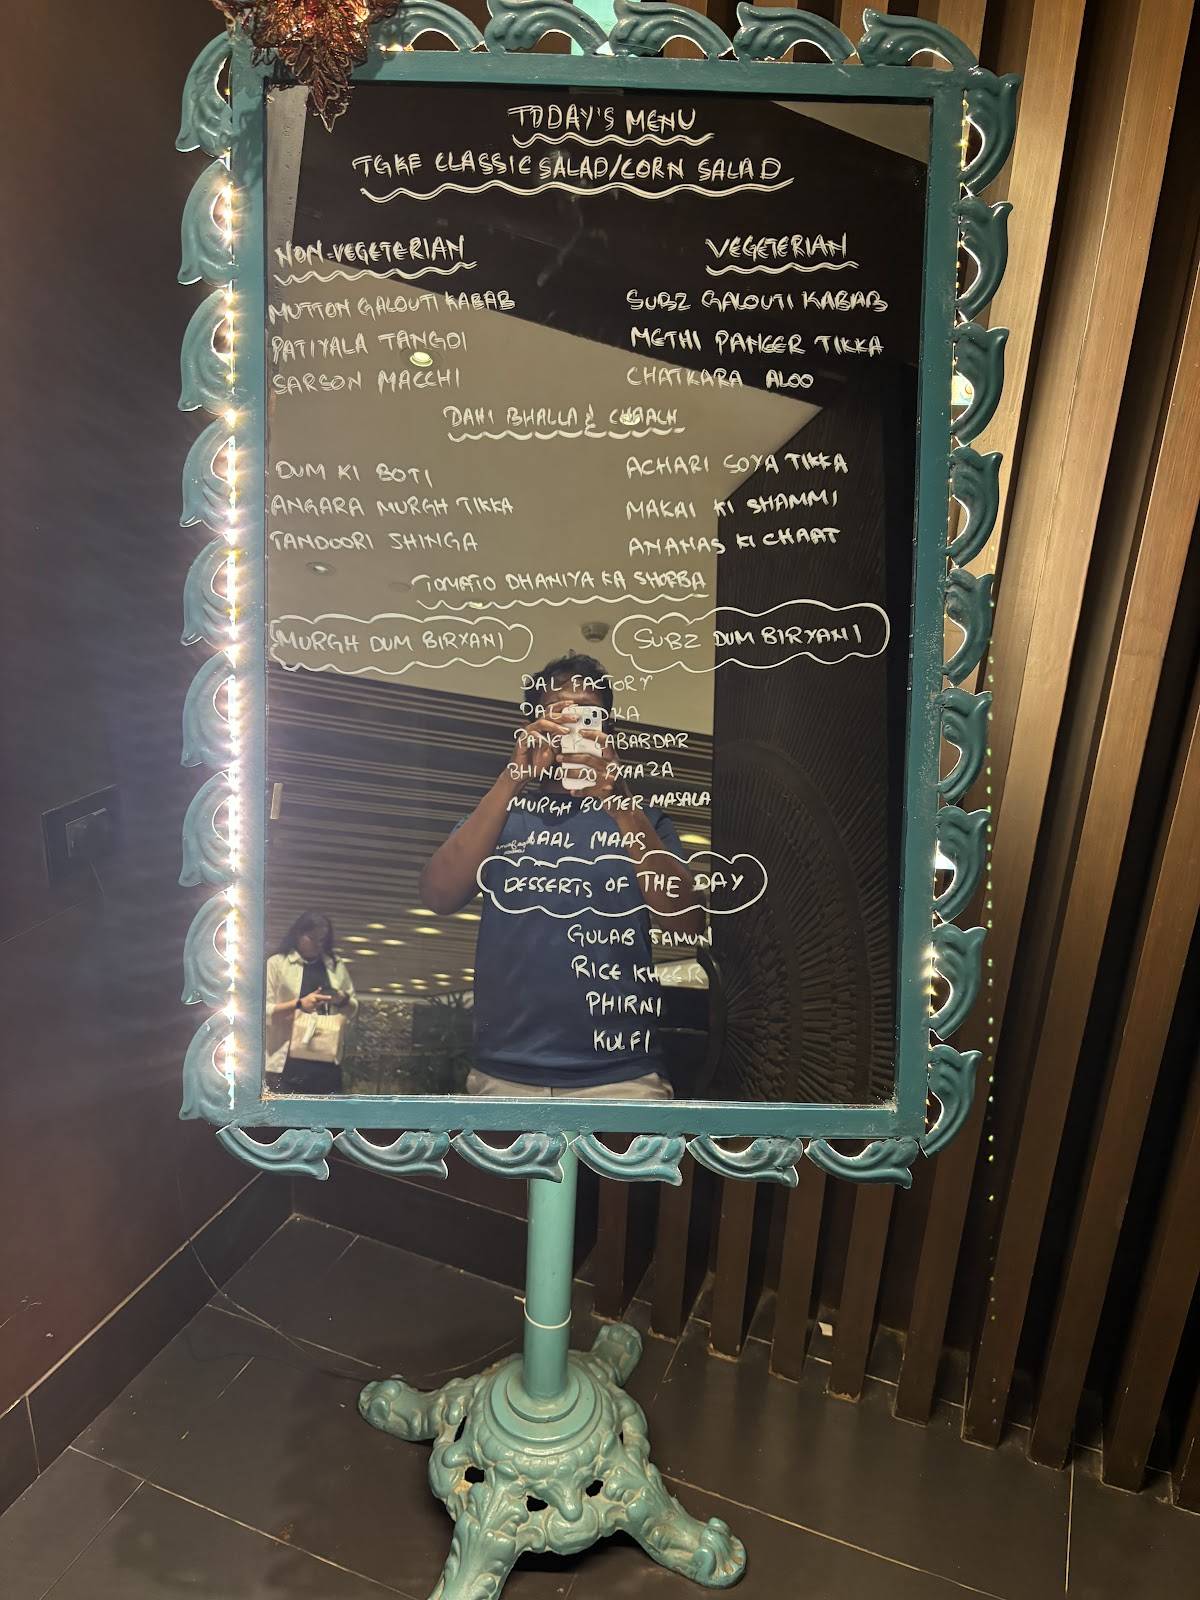 TODAY'S MENU
TGKF CLASSIC SALAD/CORN SALAD
NON-VEGETERIAN
VEGETERIAN
MUTTON GALOUTI KABAB
SUBZ GALOUTI KABAB
PATIYALA TANGDI
METHI PANEER TIKKA
SARSON MACCHI
CHATKARA ALOO
DAHI BHALLA & CHAACH
DUM KI BOTI
ACHARI SOYA TIKKA
ANGARA MURGH TIKKA
MAKAI KI SHAMMI
TANDOORI JHINGA
ANANAS KI CHAAT
TOMATO DHANIYA KA SHORBA
MURGH DUM BIRYANI
SUBZ DUM BIRYANI
DAL FACTORY
DAL
PANEER LABABDAR
BHINDI DO PYAAZA
MURGH BUTTER MASALA
LAAL MAAS
DESSERTS OF THE DAY
GULAB JAMUN
RICE KHEER
PHIRNI
KULFI